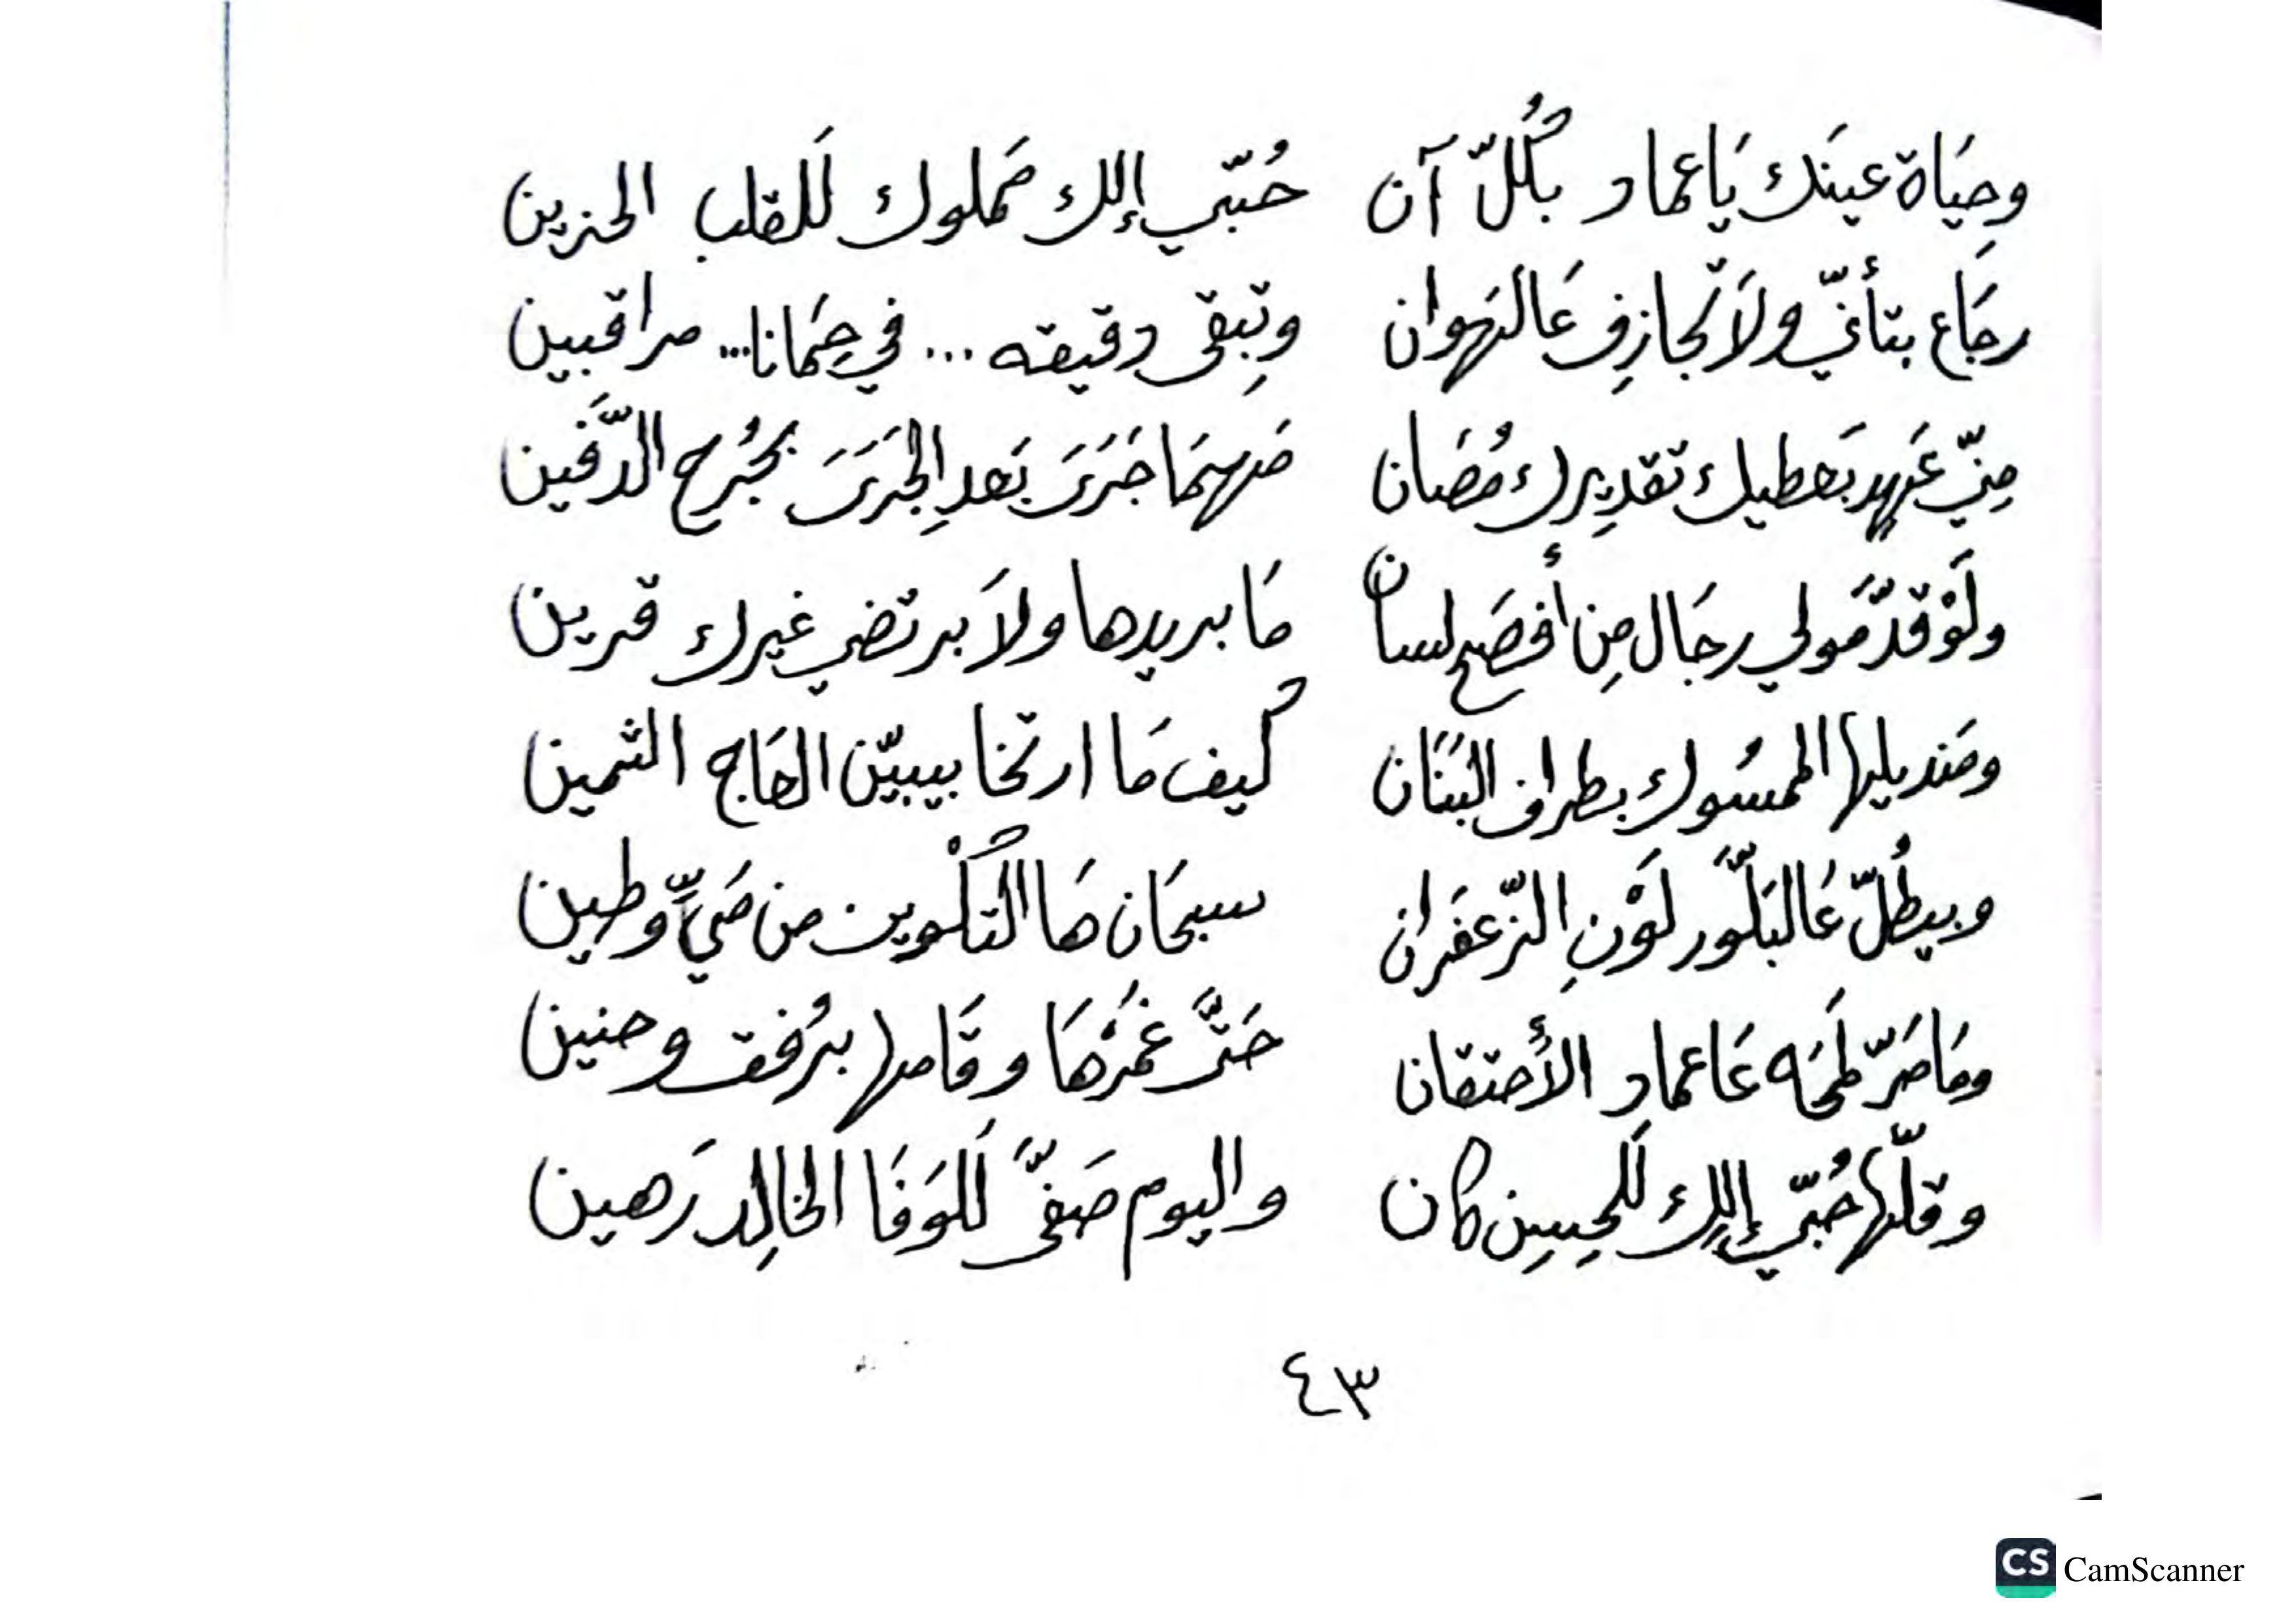 وحِيَاة عينَك يَا عماد بكُلّ آن حُبّي إلك مَملوك لَلقلب الحزين
رجَاع بتأنّي ولَا تجازِف عَالهَوان وتِبقى دقيقه ... في حِمَانا... مراقبين
مِنّي عَهد بَعطيك تقدِيرك مُصَان مَهمَا جَرَىَ بَعدِ الجَرَىَ بجُرح الدَّفين
ولَوْ قدّمَولي رجَال مِن أفصَح لسان مَا بريدها ولَا برتضي غيرك قرين
ومَنديلها الممسُوك بطراف البَنَان كيف مَا ارتخا بيبيّن العَاج الثمين
وبيطُلّ عَالبَلّور لَوْنِ الزّعفَران سبحَان هَا التكْوين من مَيّ وطين
ومَا مَرّ لمحَه عَا عماد الأحتقان حَتَّى غمُرْهَا وقَامها برُفق وحنين
وقلّها حُبّي إلِك لَلحِسِن كان واليوم صَفَّى لَلوَفَا الخالِد رَهين
٤٣
CS CamScanner